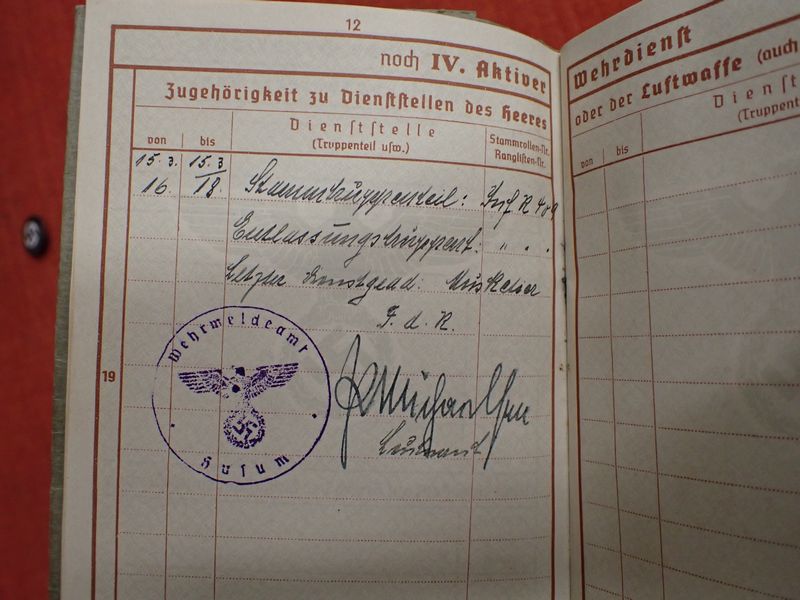 12
noch IV. Aktiver
Wehrdienst
Zugehörigkeit zu Dienststellen des Heeres
oder der Luftwaffe (auch
von
bis
Dienststelle
(Truppenteil usw.)
Stammrollen-Nr.
Ranglisten-Nr.
von
bis
Dienst
(Truppente
15.3. 15.3
16. 18
Stammtruppenteil: Inf R 409
Entlassungstruppent: " . .
Letzter Dienstgrad: Musketier
F. d. R.
19
Wehrmeldeamt
Husum
Leutnant